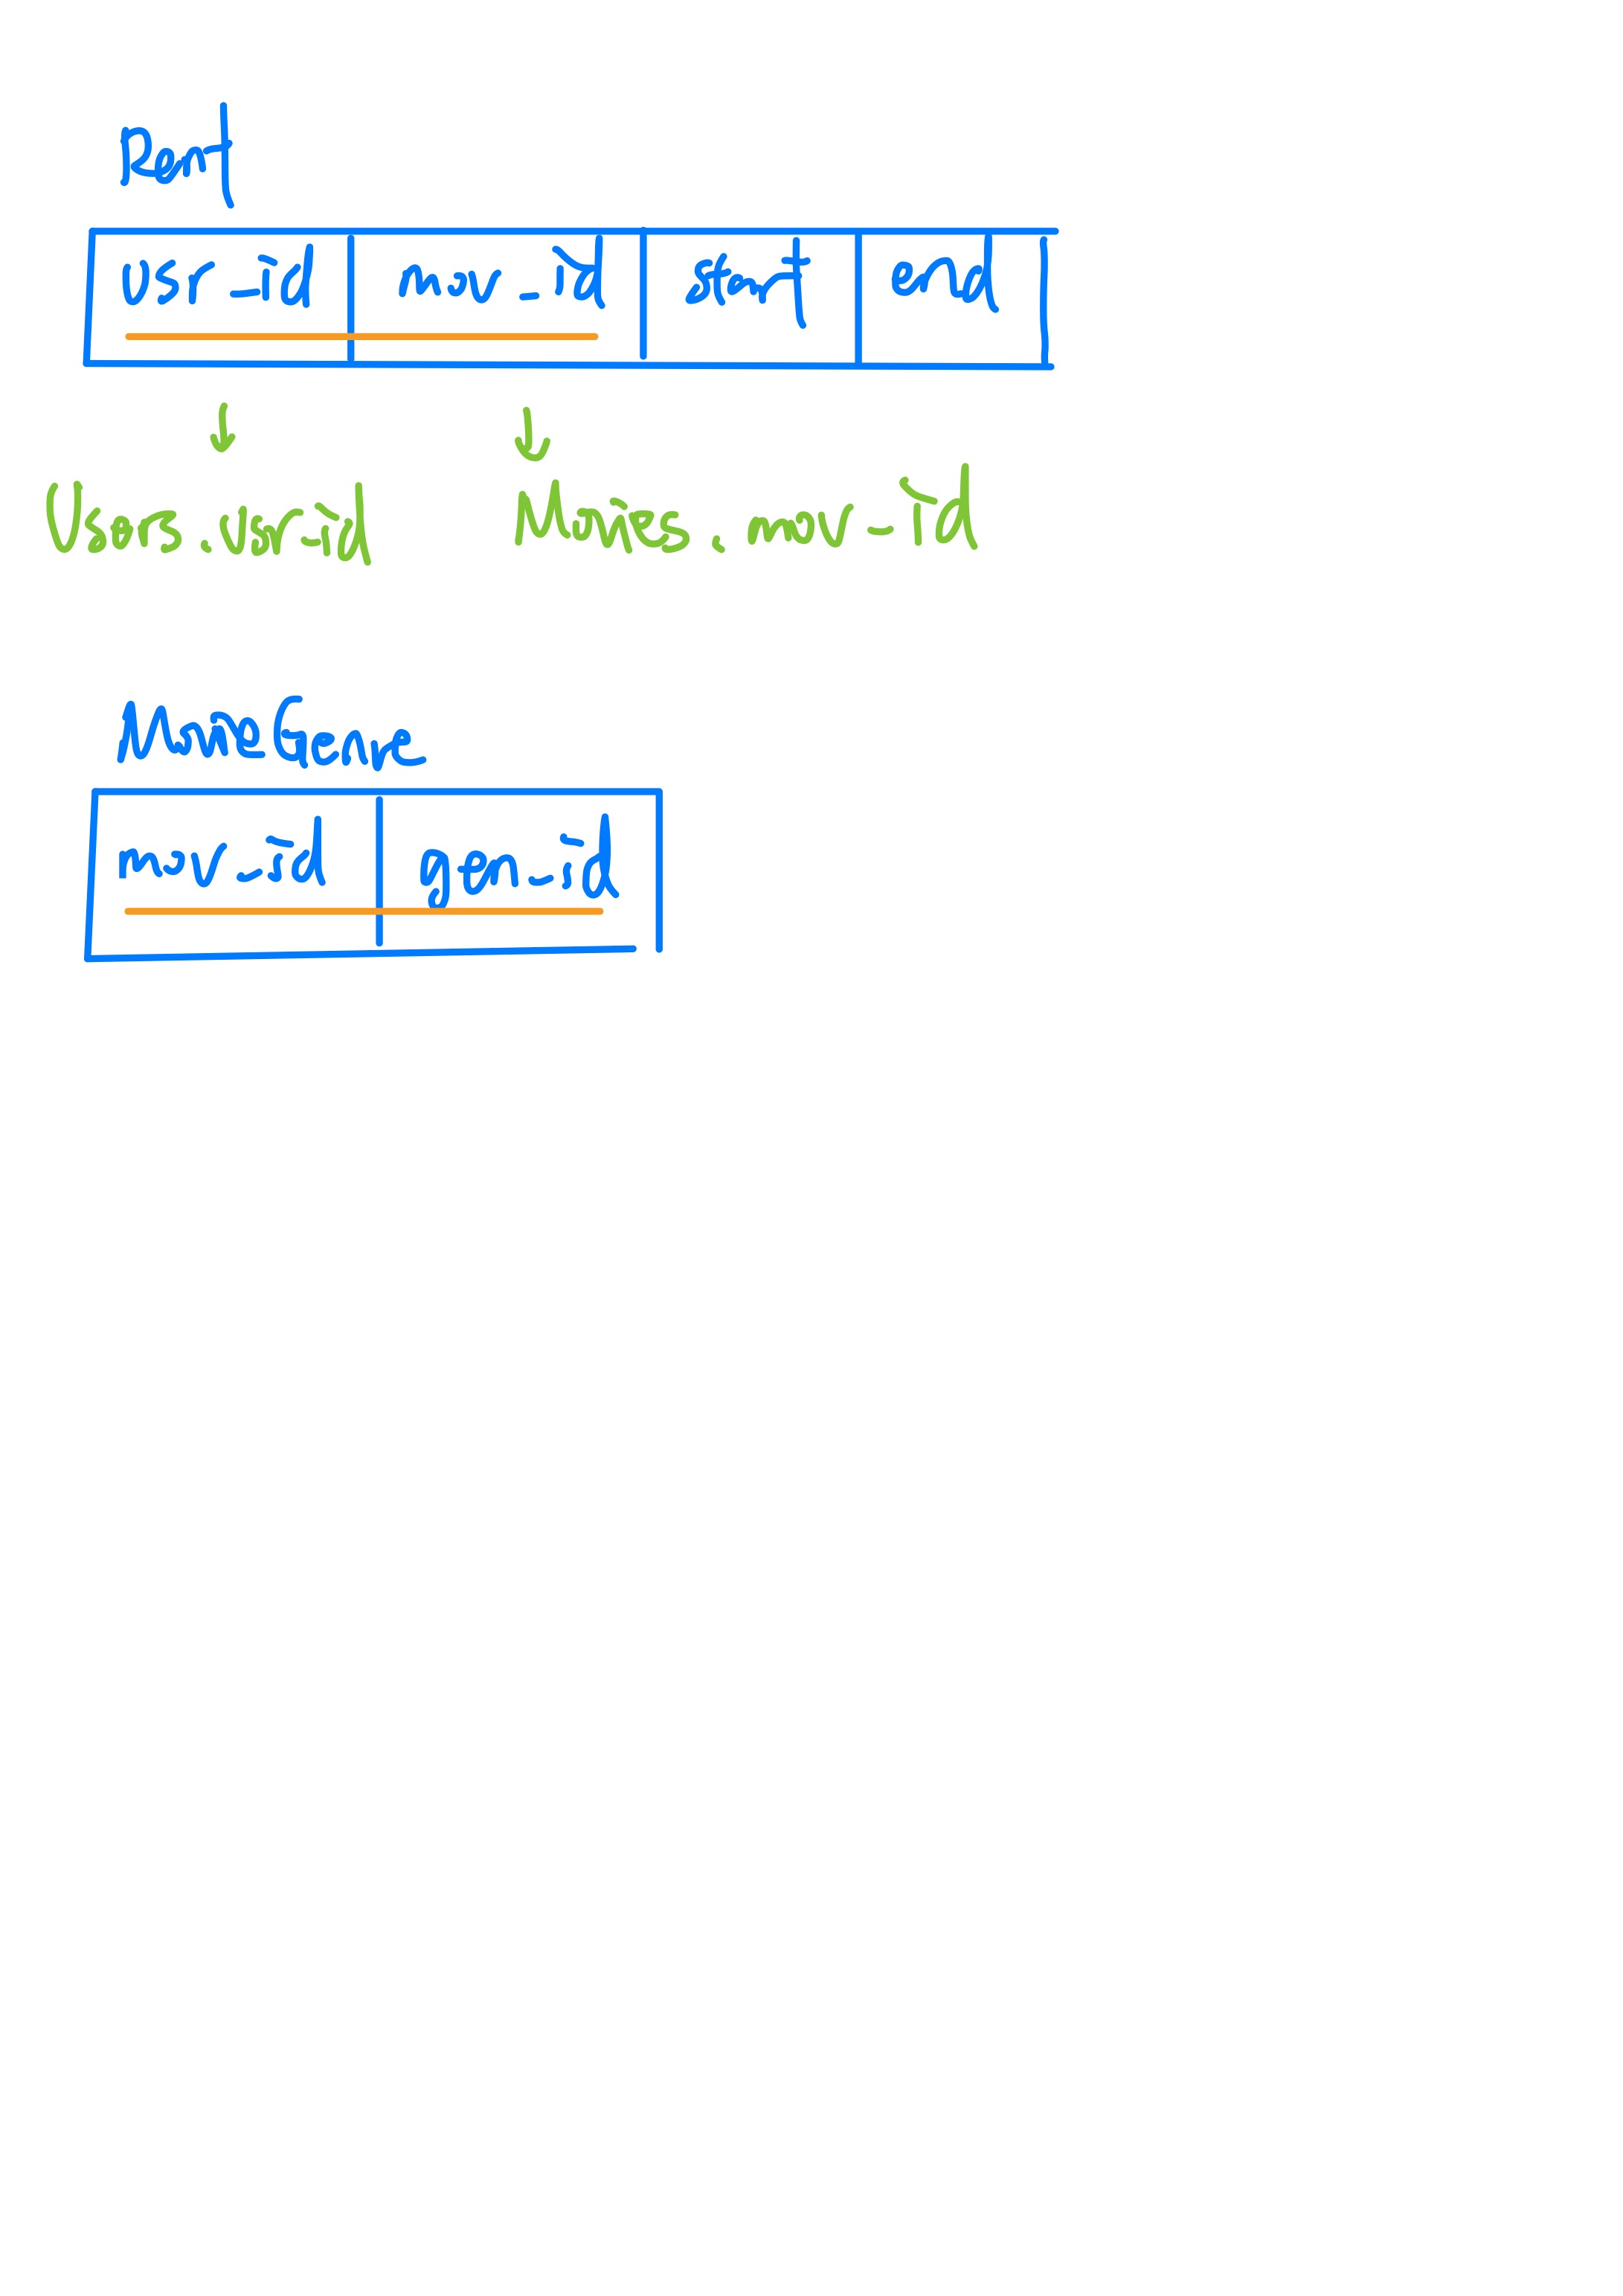 Rent
usr_id mov_id start end
Users.usr_id Movies.mov_id
MovieGenre
mov_id gen_id